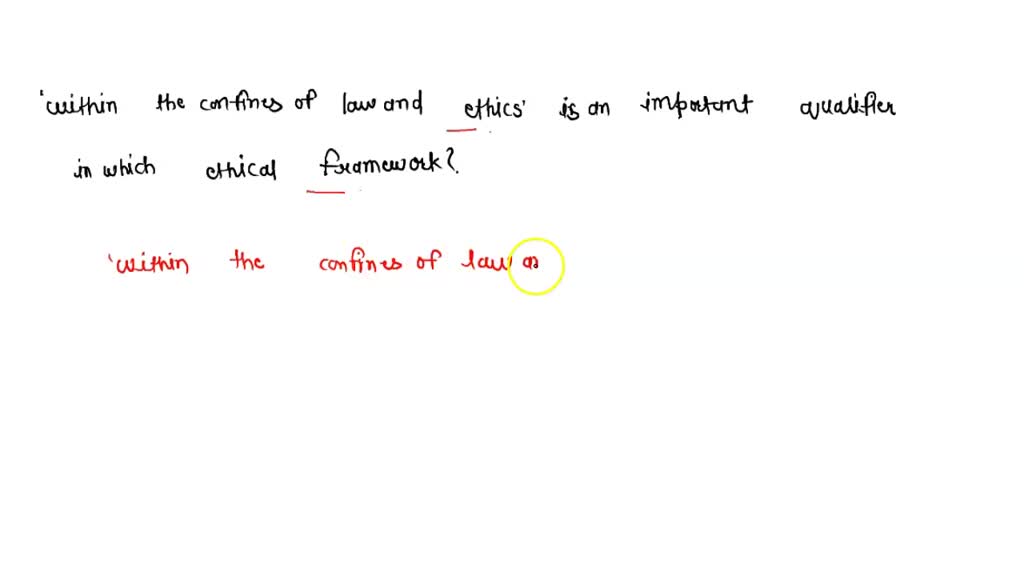 'within the confines of law and ethics' is an important qualifier
in which ethical framework?
'within the confines of law a